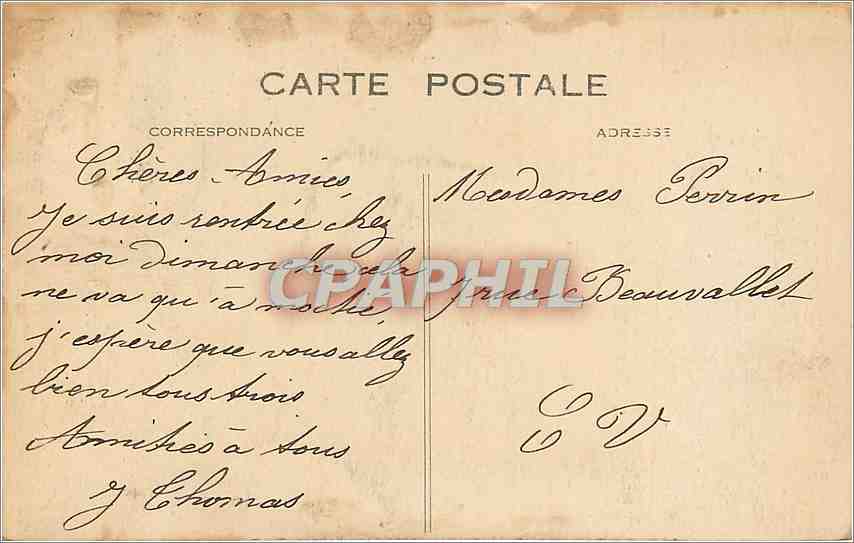 CARTE POSTALE
CORRESPONDANCE
ADRESSE
Chères Amies,
Je suis rentrée chez
moi dimanche cela
ne va qu'à moitié,
j'espère que vous allez
bien tous trois
Amitiés à tous
J Thomas
Mesdames Perrin
rue Beauvallet
E V
CPAPHIL